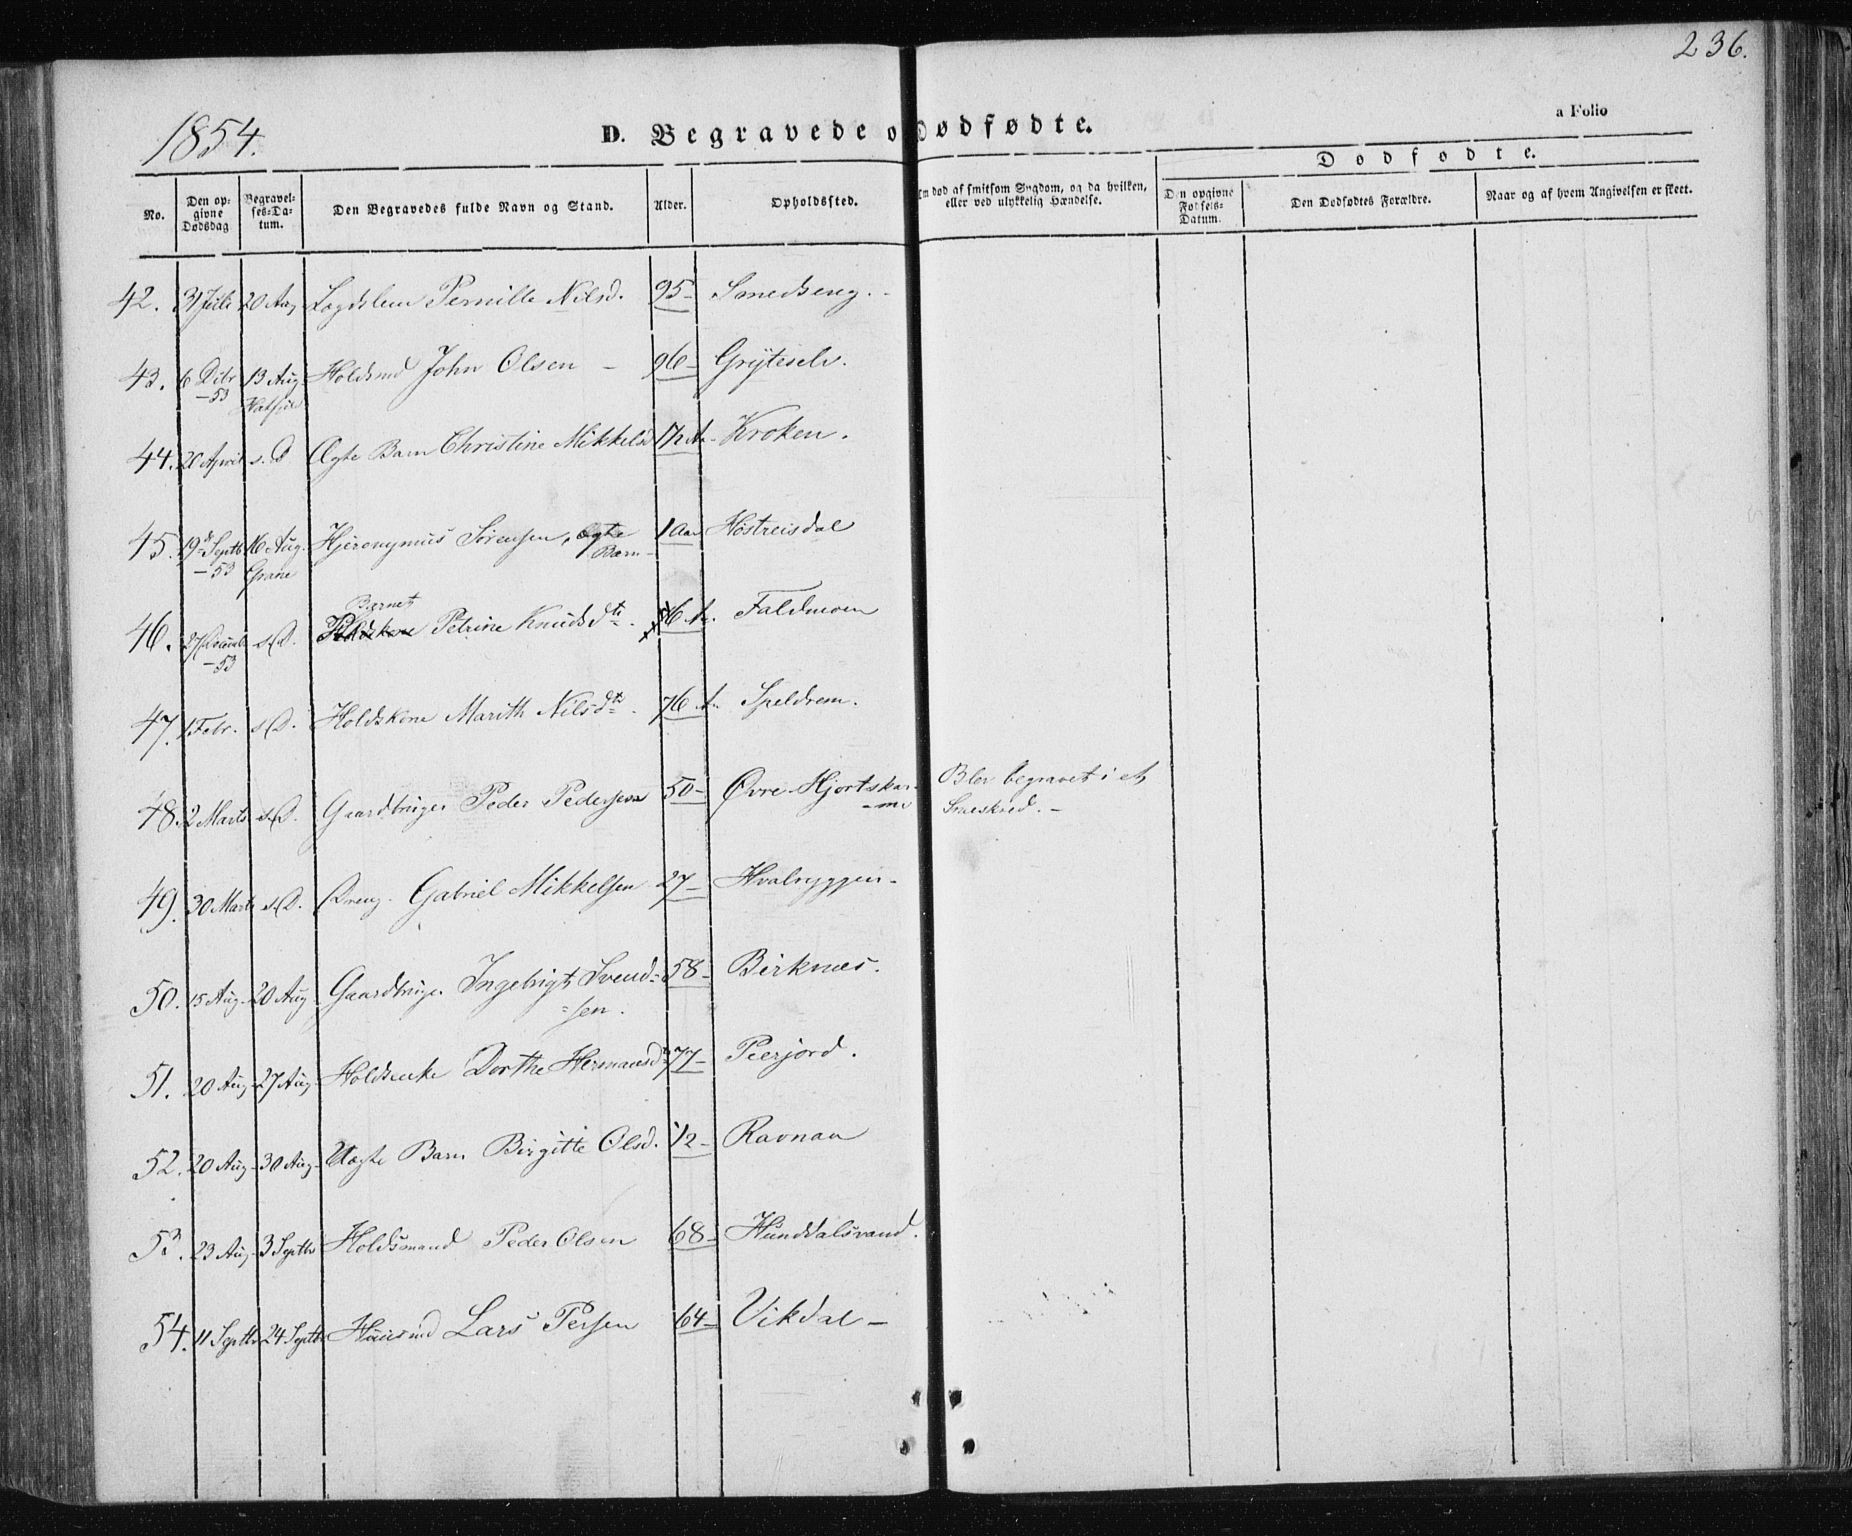 236.
1854.
D. Begravede o Dødfødte.
a Folio
Dødfødte.
No.
Den op-
givne
Dødsdag
Begravel-
ses-Da-
tum.
Den Begravedes fulde Navn og Stand.
Alder.
Opholdssted.
Om død af smitsom Sygdom, og da hvilken,
eller ved ulykkelig Hændelse.
Den opgivne
Fødsels-
Datum.
Den Dødfødtes Forældre.
Naar og af hvem Angivelsen er skeet.
42. 31 Juli 20 Aug Lægdslem Pernille Nilsd. 95- Smedseng.
43. 6 Dcbr 13 Aug Holdsmd John Olsen - 96- Gryteselv.
-53 Hatfjel
44. 20 April s. D Ægte Barn Christine Mikkelsd 1½ A. Kroken.
45. 19d Septb 16 Aug. Hjeronymus Sørensen, Ægte 1 Aar Høstreisdal
-53 Grane Barn-
Barnet
46. 27 s. D. Petrine Knudsdtr. 6 A. Faldmoen
-53
47. 1 Febr. s. D. Holdskone Marith Nilsdtr. 76 A. Speldrem.
48. 2 Marts s. D. Gaardbruger Peder Pedersen 50- Øvre-Hjortskar- Blev begravet i et
-me Sneeskred. -
49. 30 Marts s. D. Dreng. Gabriel Mikkelsen 27- Hvalryggen-
50. 15 Aug- 20 Aug Gaardbruger Ingebrigt Svend= 58- Birknæs.
=sen.
51. 20 Aug- 27 Aug- Holdsenke Dorthe Hermansd. 77- Peerjord.
52. 20 Aug- 30 Aug- Uægte Barn Birgitte Olsd. 1/2- Ravnaa
53. 23 Aug- 3 Septbr Holdsmand Peder Olsen 68- Hunddalsvand.
54. 11 Septbr 24 Septbr Huusmd Lars Persen 64- Vikdal -